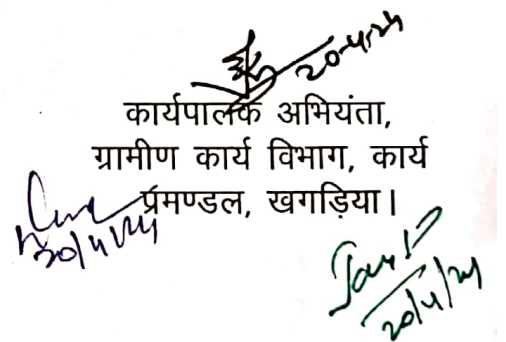 20-4-24
कार्यपालक अभियंता,
ग्रामीण कार्य विभाग, कार्य
प्रमण्डल, खगड़िया।
20/4/24
20/4/24